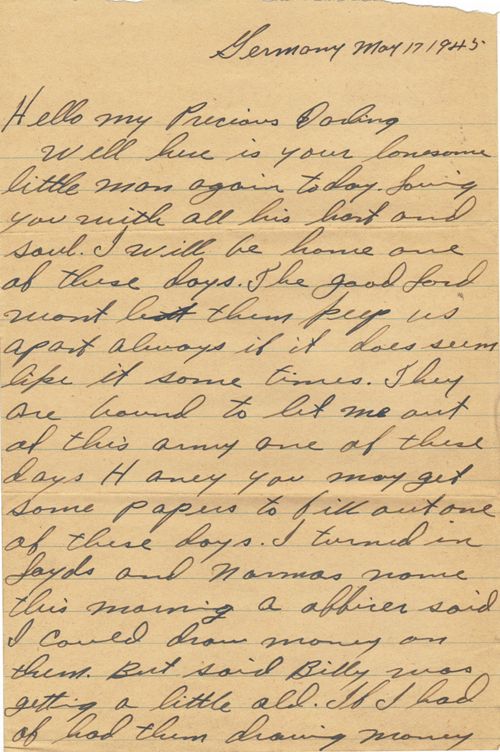 Germany May 17 1945
Hello my Precious Darling
Well here is your lonesome
little man again today. loving
you with all his hart and
soul. I will be home one
of these days. The good Lord
wont let them keep us
apart always if it does seem
like it some times. They
are bound to let me out
of this army one of these
days Honey you may get
some papers to fill out one
of these days. I turned in
Loyds and Normas name
this morning a officer said
I could draw money on
them. But said Billy was
getting a little old. If I had
of had them drawing money